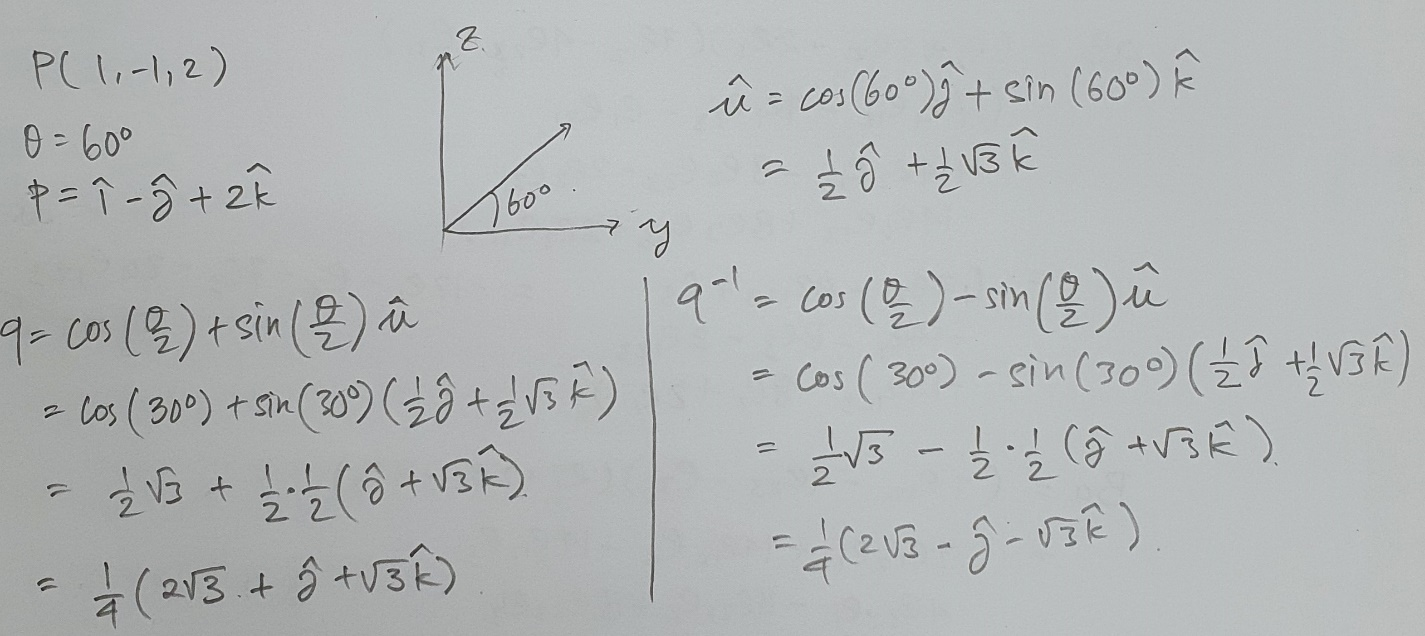 P(1,-1,2)
θ = 60°
p = î - ĵ + 2k̂
z
60°
y
û = cos(60°)ĵ + sin(60°)k̂
= 1/2 ĵ + 1/2 √3 k̂
q = cos(θ/2) + sin(θ/2) û
= cos(30°) + sin(30°)(1/2 ĵ + 1/2 √3 k̂)
= 1/2 √3 + 1/2 · 1/2 (ĵ + √3 k̂)
= 1/4 (2√3 + ĵ + √3 k̂)
q⁻¹ = cos(θ/2) - sin(θ/2) û
= cos(30°) - sin(30°)(1/2 ĵ + 1/2 √3 k̂)
= 1/2 √3 - 1/2 · 1/2 (ĵ + √3 k̂).
= 1/4 (2√3 - ĵ - √3 k̂).